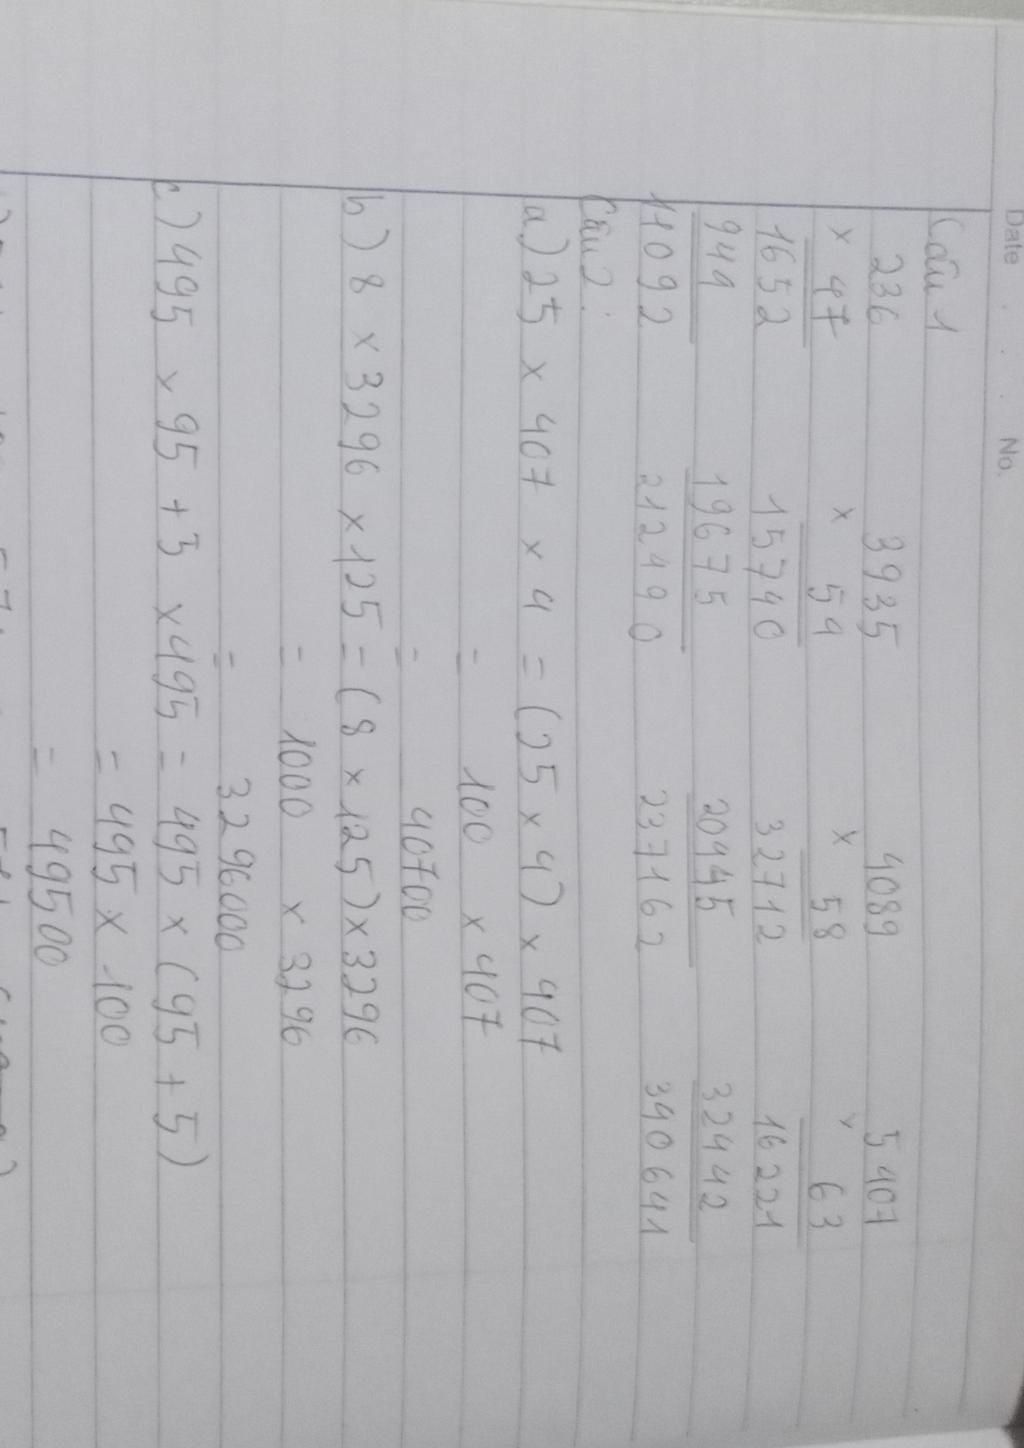 Date . . . No.
Câu 1
236 3935 4089 5407
× 47 × 54 × 58 × 63
1652 15740 32712 16221
944 19675 20445 32442
11092 212490 237162 340641
Câu 2:
a) 25 × 407 × 4 = (25 × 4) × 407
= 100 × 407
= 40700
b) 8 × 3296 × 125 = (8 × 125) × 3296
= 1000 × 3296
= 3296000
c) 495 × 95 + 3 × 495 = 495 × (95 + 5)
= 495 × 100
= 49500